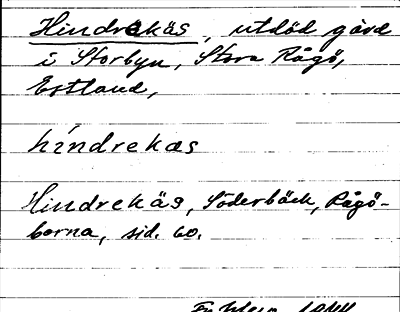 Hindrekäs, utdöd gård
i Storbyn, Stora Rågö,
Estland,
híndrekas
Hindrekäs, Söderbäck, Rågö-
borna, sid. 60.